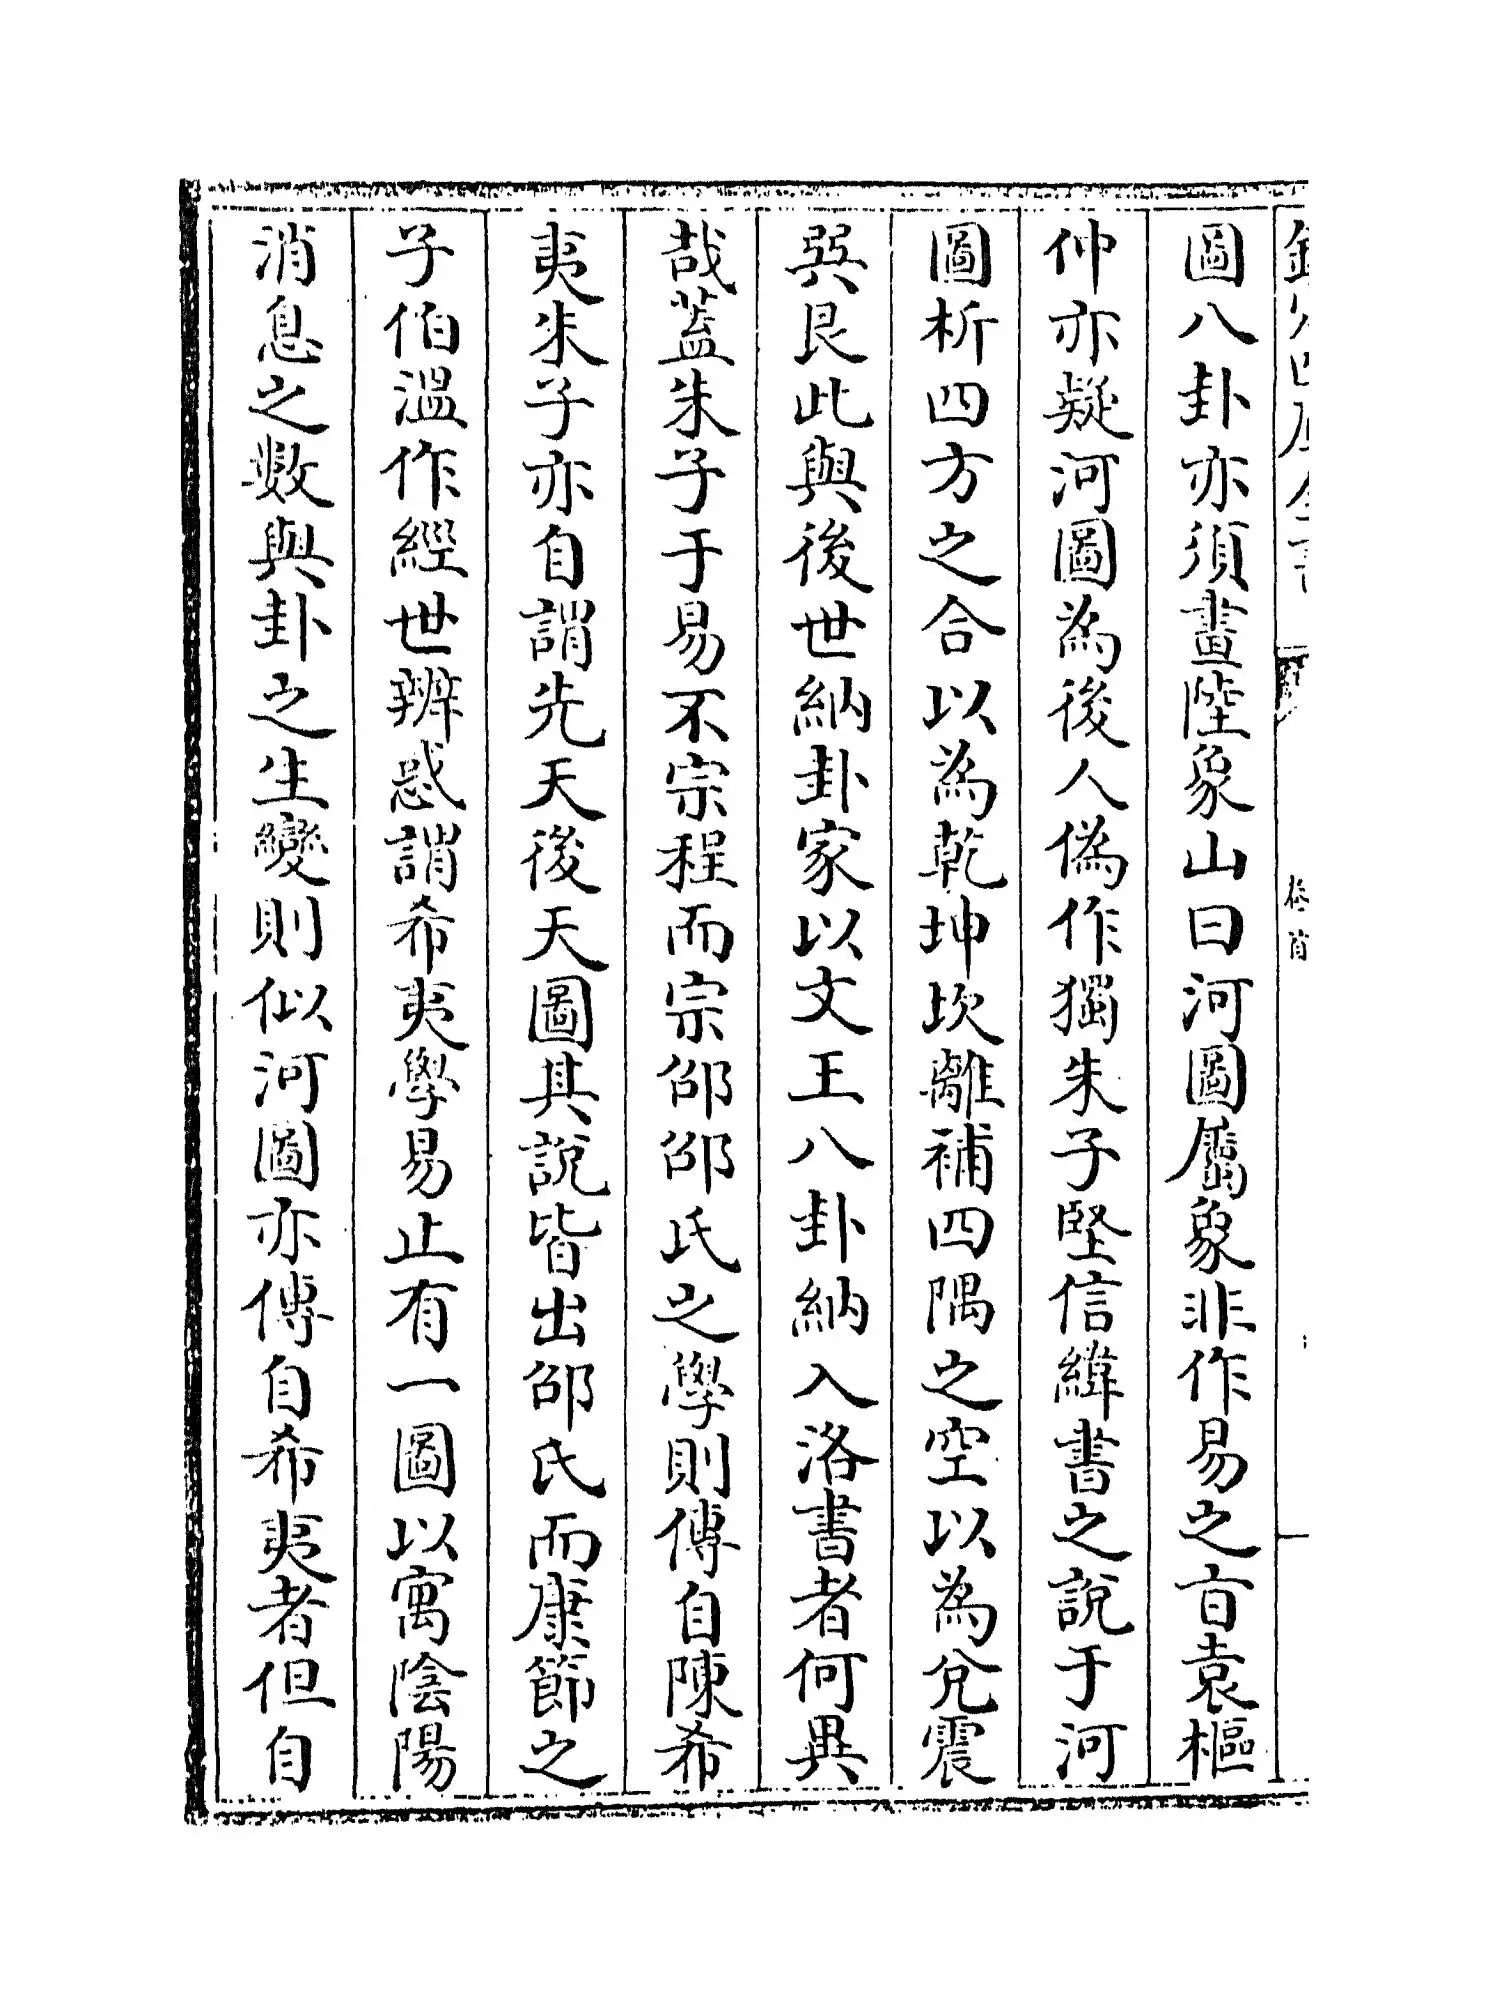 圖八卦亦須畫陸象山曰河圖屬象非作易之㫖袁樞
仲亦疑河圖為後人偽作獨朱子堅信緯書之說于河
圖析四方之合以為乾坤坎離補四隅之空以為兊震
巽艮此與後世納卦家以文王八卦納入洛書者何異
哉蓋朱子于易不宗程而宗邵邵氏之學則傳自陳希
夷朱子亦自謂先天後天圖其說皆出邵氏而康節之
子伯溫作經世辨惑謂希夷學易止有一圖以寓陰陽
消息之數與卦之生變則似河圖亦傳自希夷者但自